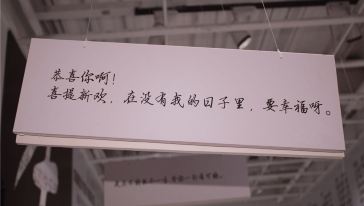 恭喜你啊！
喜提新欢，在没有我的日子里，要幸福呀。